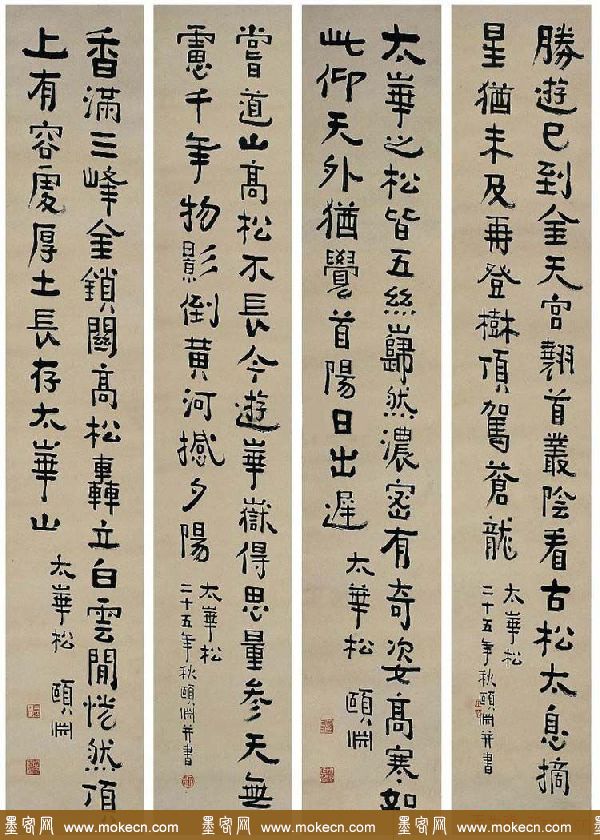 勝遊已到金天宮翹首叢陰看古松太息摘
星猶未及再登樹頂駕蒼龍
太華松
二十五年秋頤淵并書
太華之松皆五絲巋然濃密有奇姿高寒如
此仰天外猶覺首陽日出遲
太華松 頤淵
嘗道山高松不長今遊華嶽得思量參天無
慮千年物影倒黃河撼夕陽
太華松
二十五年秋頤淵并書
香滿三峰金鎖關高松轟立白雲閒恍然頂
上有容處厚土長存太華山
太華松 頤淵
墨客网 www.mokecn.com 墨客网 www.mokecn.com 墨客网 www.mokecn.com 墨客网 www.mokecn.com